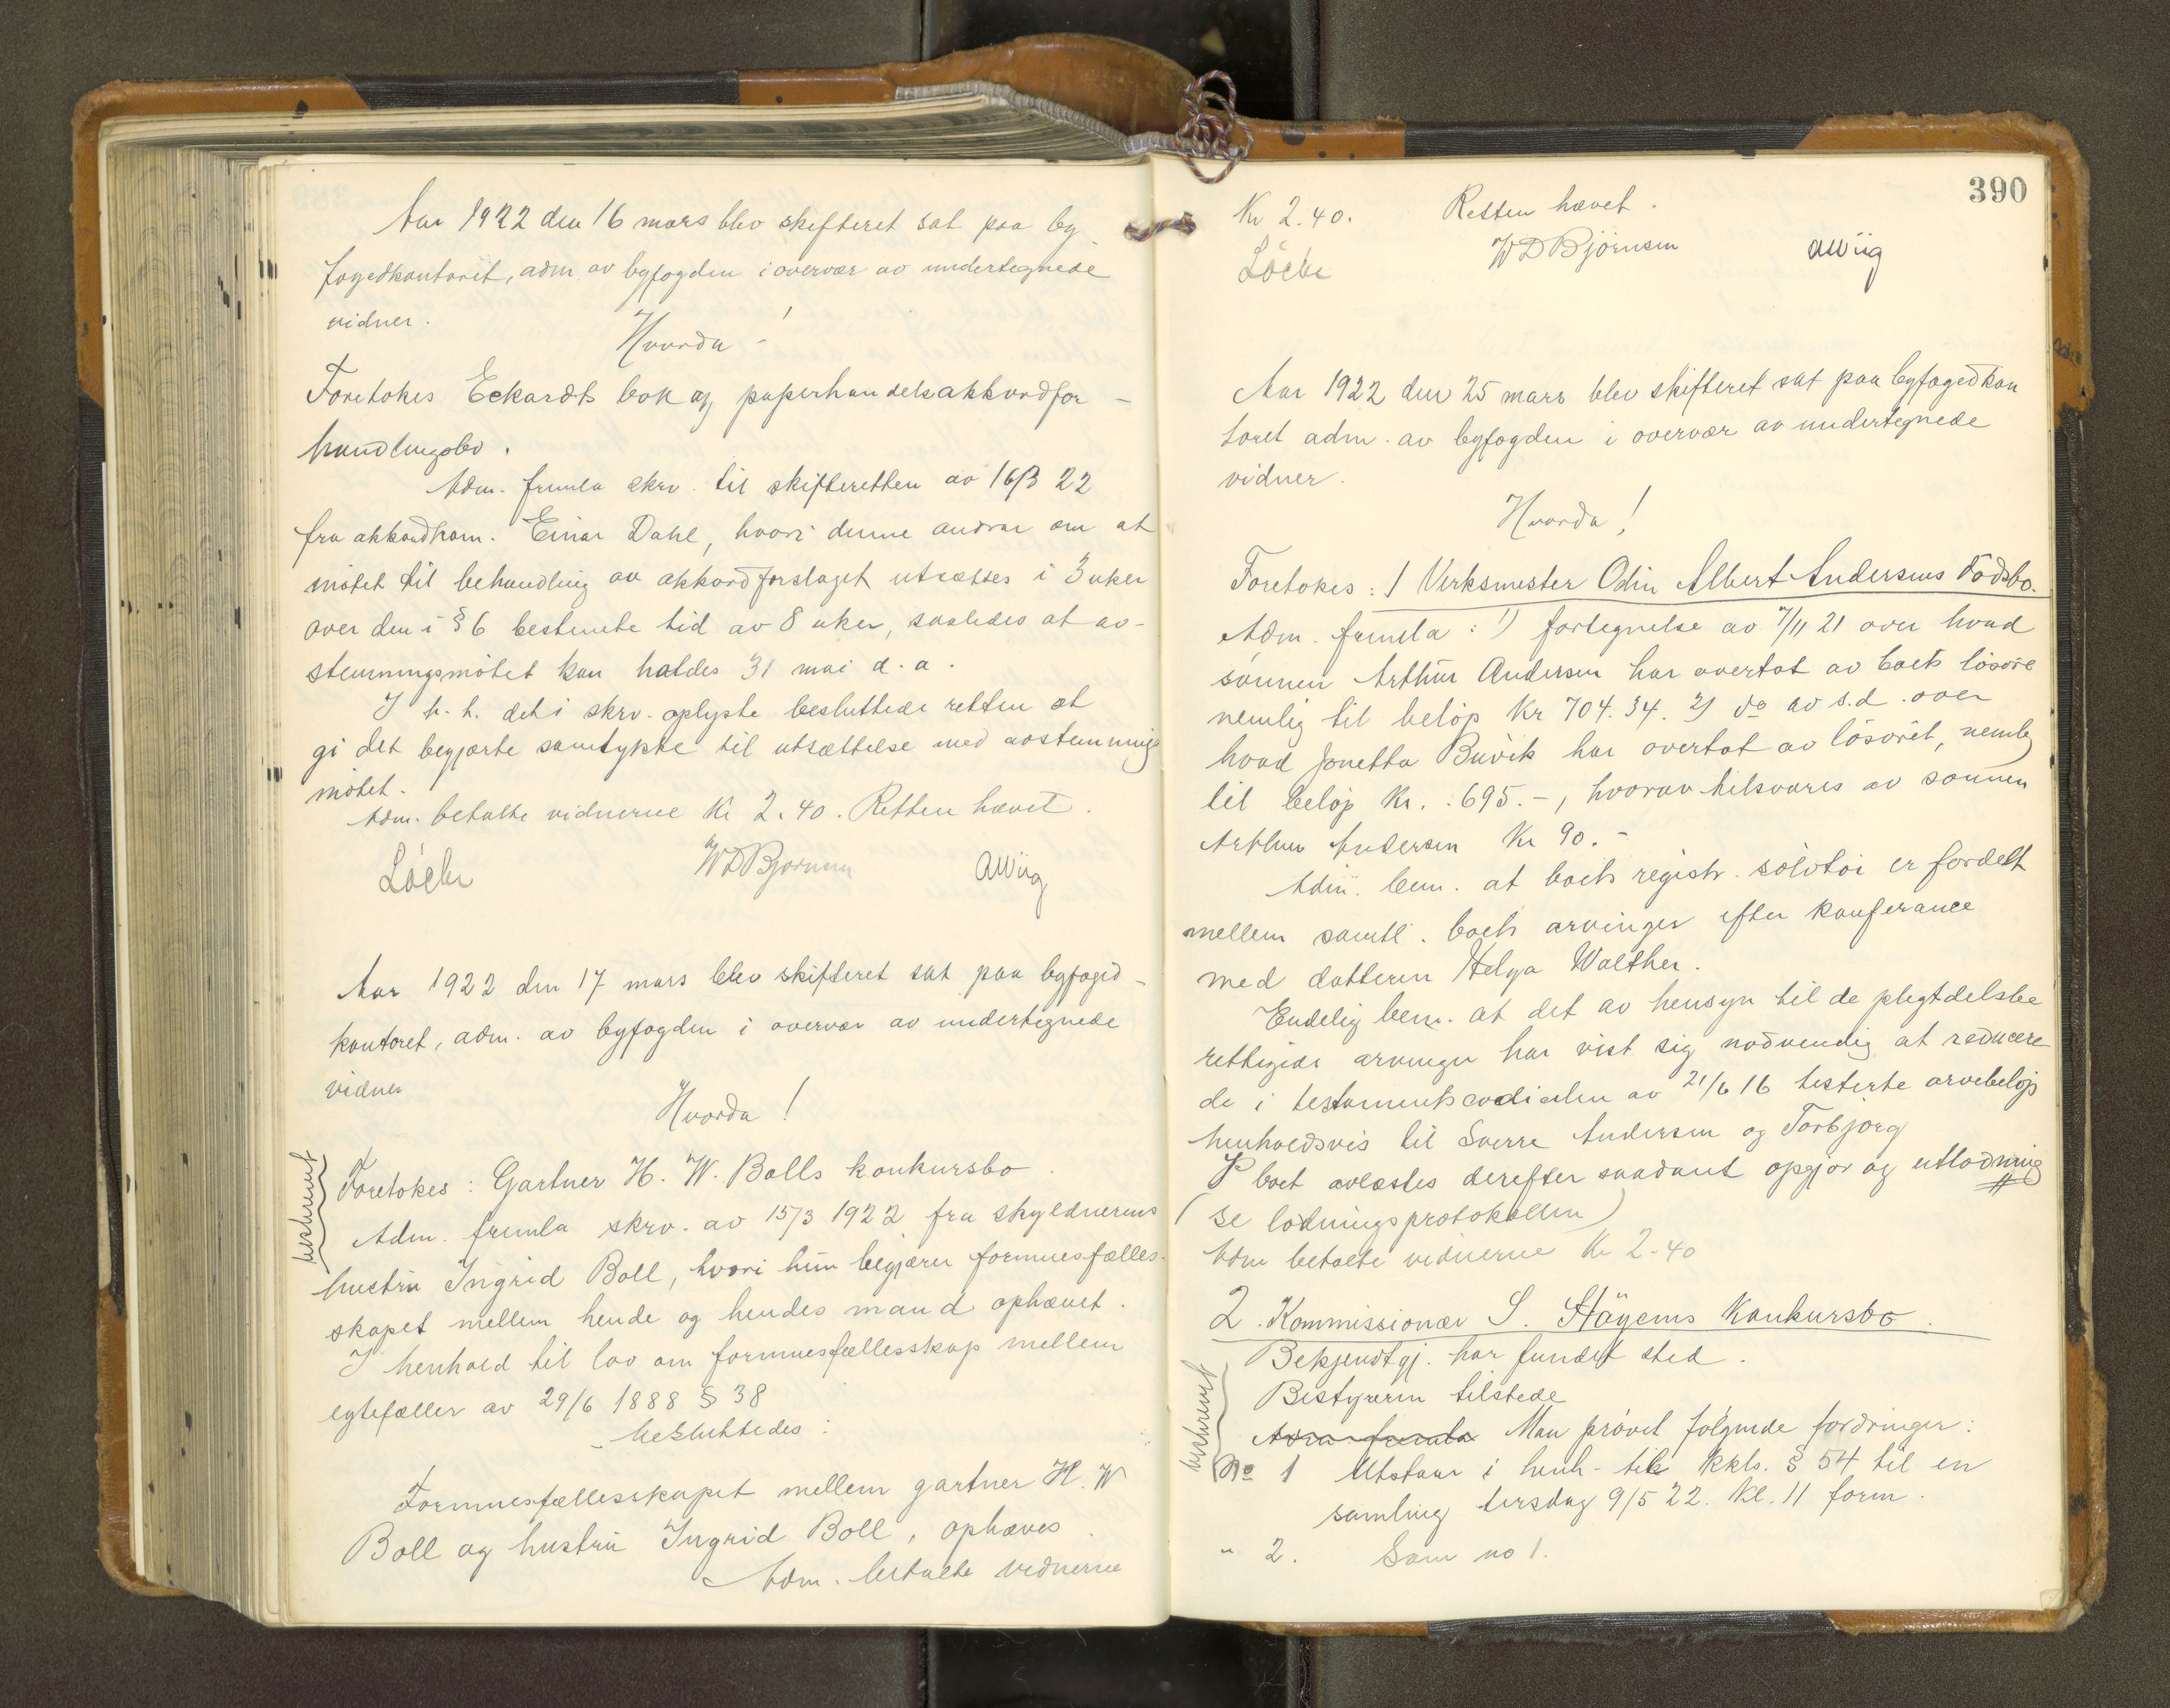 Aar 1922 den 16 mars blev skifteret sat paa by
fogedkontoret, adm. av byfogden i overvær av undertegnede
vidner.
Hvorda!
Foretokes Eckardts bok og papirhandels akkordfor-
handlingsbo.
Adm. fremla skrv. til skifteretten av 16/3 22
fra akkordkom. Einar Dahl, hvori denne andrar om at
møtet til behandling av akkordforslaget utsættes i 3 uker
over den i § 6 bestemte tid av 8 uker, saaledes at av-
stemningsmøtet kan holdes 31 mai d.a.
I h.t. det i skrv. oplyste besluttede retten at
gi det begjærte samtykke til utsættelse med avstemnings
møtet.
Adm. betalte vidnerne Kr 2.40. Retten hævet.
WDBjørnsen AWiig
Aar 1922 den 17 mars blev skifteret sat paa byfoged-
kontoret, adm. av byfogden i overvær av undertegnede
vidner
Hvorda!
beskrevet
Foretokes: Gartner H. W. Bolls konkursbo.
Adm. fremla skrv. av 15/3 1922 fra skyldnerens
hustru Ingrid Boll, hvori hun begjærer formuesfælles-
skapet mellem hende og hendes mand ophævet.
I henhold til lov om formuesfællesskap mellem
egtefæller av 29/6 1888 § 38
besluttedes:
Formuesfællesskapet mellem gartner H. W
Boll og hustru Ingrid Boll, ophæves.
Adm. betalte vidnerne
390
Kr 2.40. Retten hævet.
WDBjørnsen AWiig
Aar 1922 den 25 mars blev skifteret sat paa byfogedkon
toret adm. av byfogden i overvær av undertegnede
vidner.
Hvorda!
Foretokes: 1 Verksmester Odin Albert Andersens dødsbo.
Adm. fremla: 1) fortegnelse av 7/11 21 over hvad
sønnen Arthur Andersen har overtat av boets løsøre
nemlig til beløp Kr 704.34. 2) do av s.d. over
hvad Jonetta Buvik har overtat av løsøret, nemlig
til beløp Kr.: 695.-, hvorav tilsvares av sønnen
Arthur Andersen Kr 90.-
Adm. bem. at boets registr. sølvtøi er fordelt
mellem samtl. boets arvinger efter konferance
med datteren Helga Walther.
Endelig bem. at det av hensyn til de plegtdelsbe
rettigede arvinger har vist sig nødvendig at reducere
de i testamentscodicilen av 21/6 16 testerte arvebeløp
henholdsvis til Sverre Andersen og Torbjørg
I boet avlæstes derefter saadant opgjør og utlodning
(se lodningsprotokollen)
Adm betalte vidnerne Kr 2-40
2. Kommissionær S. Høyems konkursbo.
beskrevet
Bekjendtgj. har fundet sted.
Bestyreren tilstede
Adm. fremla Man prøvet følgende fordringer:
No 1 Utstaar i henh. til kkls. § 54 til en
samling tirsdag 9/5 22. Kl. 11 form.
" 2. Som no 1.